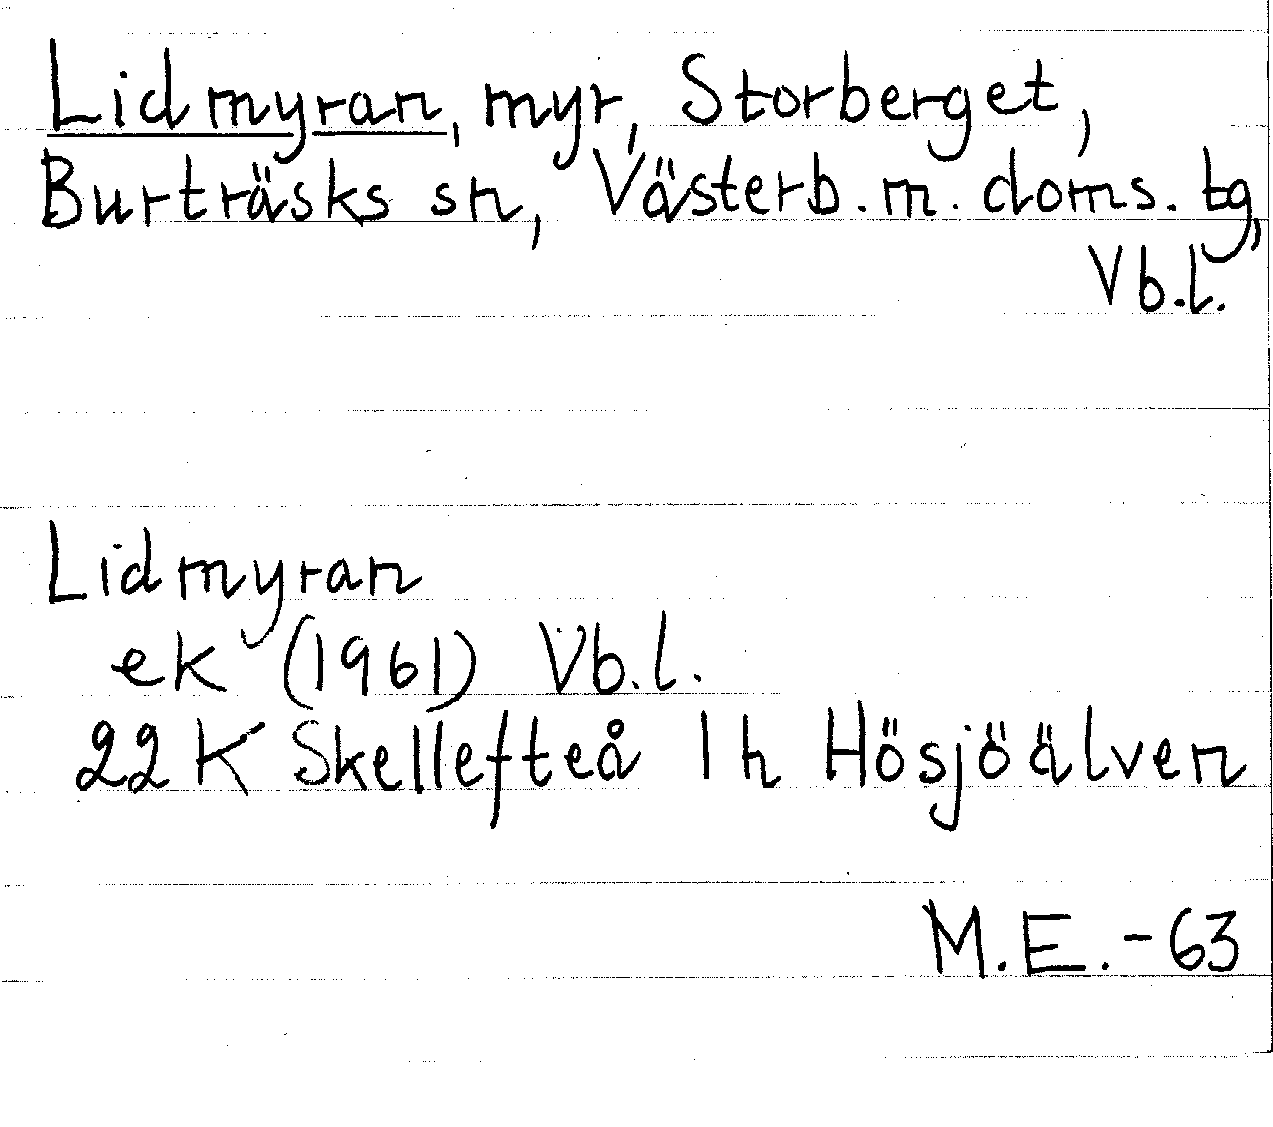 Lidmyran, myr, Storberget,
Burträsks sn, Västerb. m. doms. tg,
Vb.l.
Lidmyran
ek (1961) Vb.l.
22 K Skellefteå 1 h Hösjöälven
M.E.-63